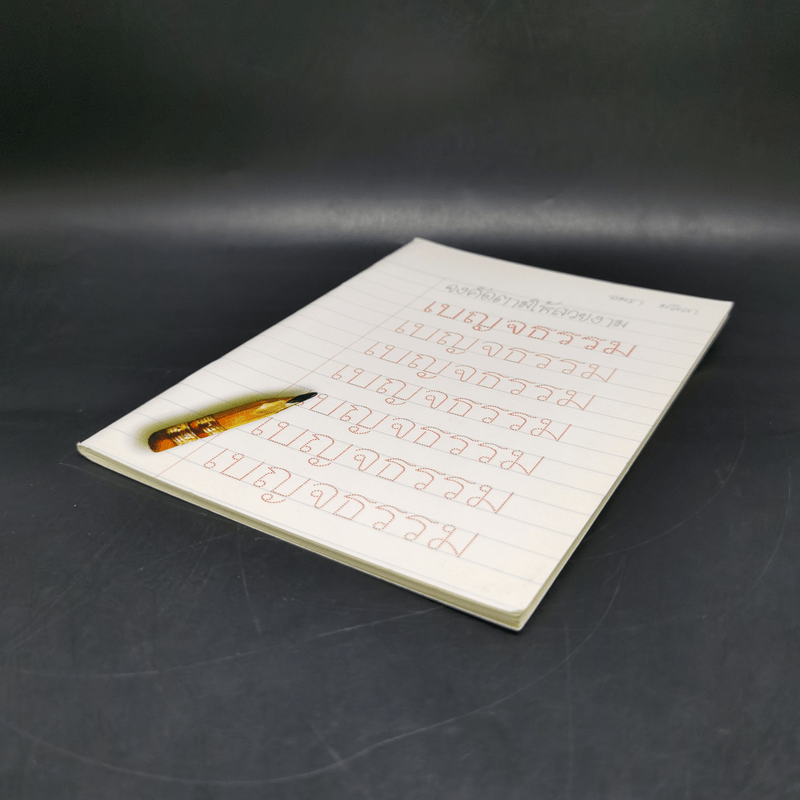 จงคัดตามให้สวยงาม
เบญจธรรม
เบญจธรรม
เบญจธรรม
เบญจธรรม
เบญจธรรม
เบญจธรรม
เบญจธรรม